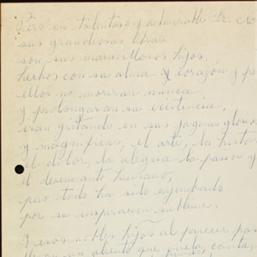 Pero su talentoso y admirable Dr. cre
sus grandiosas obras
son sus maravillosos hijos,
hechos con su alma y corazón y po
ellos no morirán nunca
y prolongarán su existencia,
gritando en sus páginas glorio
y magníficas, el arte, la histo
el dolor, la alegría la pasión y
el humano,
pero todo ha sido
por su inspiración sublime.
Y esos nobles hijos al parecer pa
un que vuela, canta,